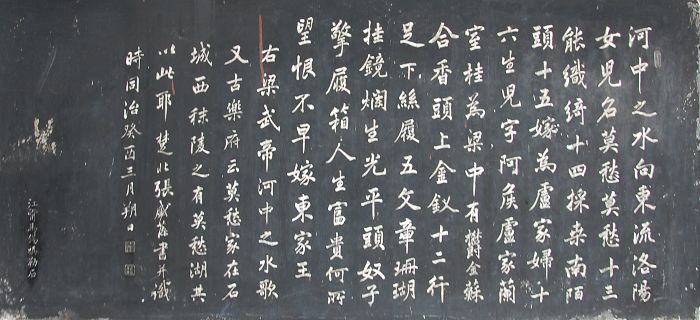 河中之水向東流洛陽
女兒名莫愁莫愁十三
能織綺十四採桑南陌
頭十五嫁為盧家婦十
六生兒字阿侯盧家蘭
室桂為梁中有鬱金蘇
合香頭上金釵十二行
足下絲履五文章珊瑚
挂鏡爛生光平頭奴子
擎履箱人生富貴何所
望恨不早嫁東家王
右梁武帝河中之水歌
又古樂府云莫愁家在石
城西秣陵之有莫愁湖其
以此耶楚北張盛藻書并識
時同治癸酉三月朔日
江寧石